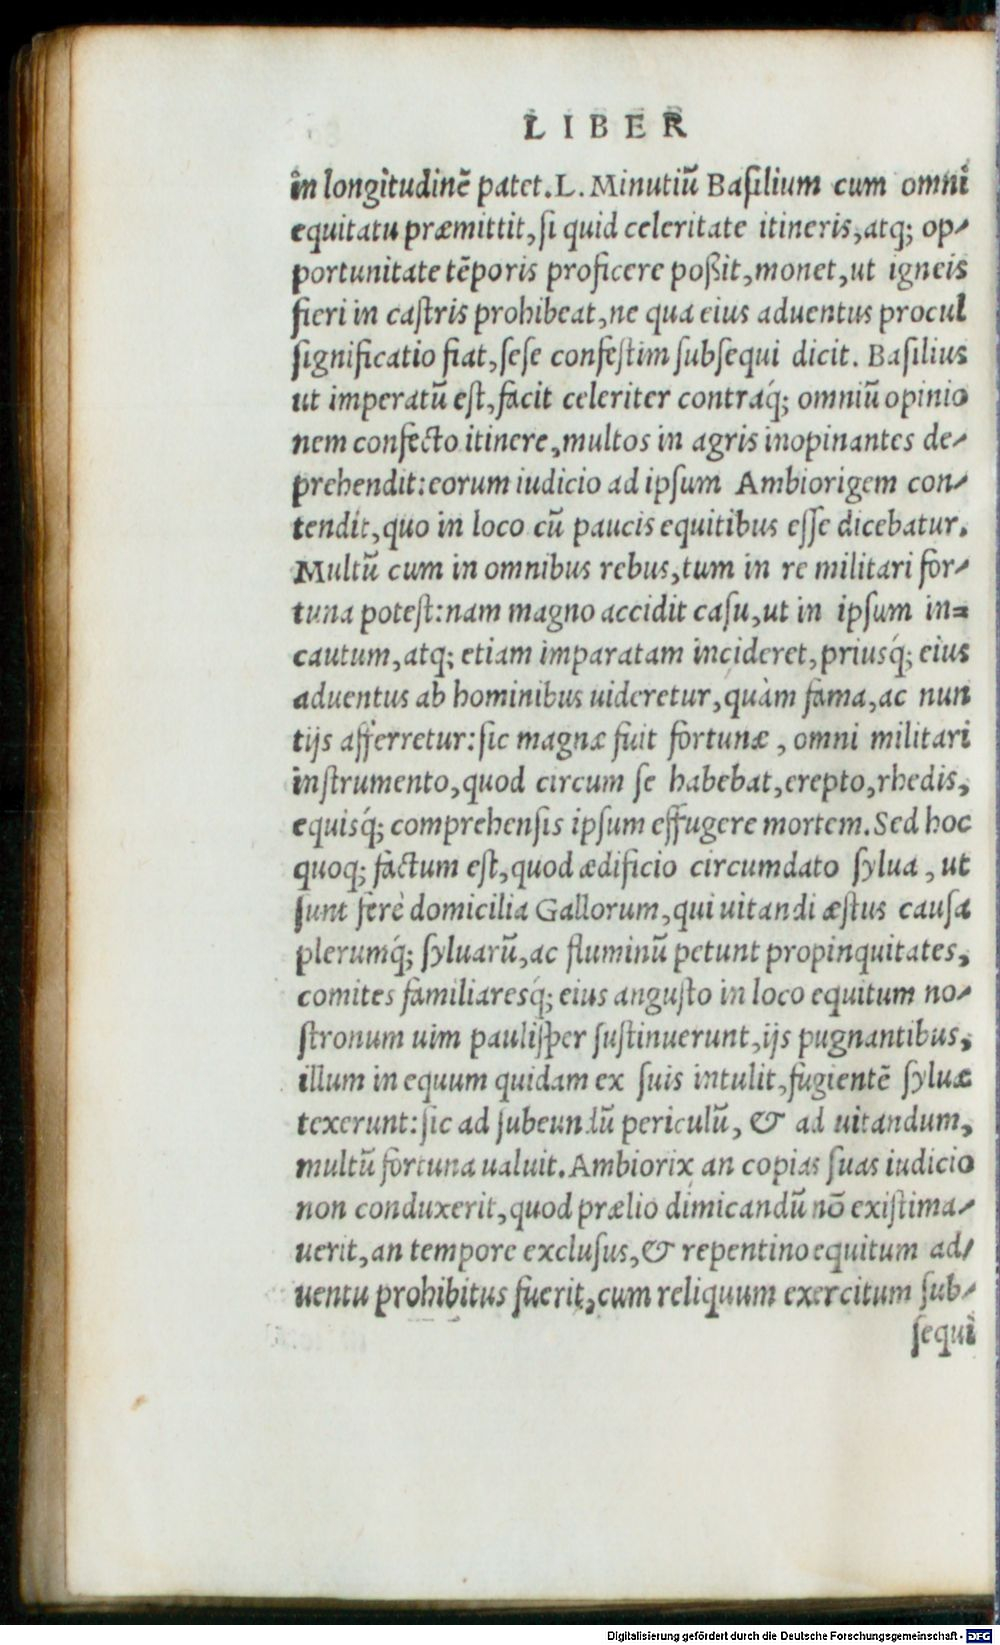 LIBER
in longitudinē patet. L. Minutiū Baſilium cum omni
equitatu præmittit, ſi quid celeritate itineris, atq; op-
portunitate tēporis proficere poßit, monet, ut igneis
fieri in caſtris prohibeat, ne qua eius aduentus procul
ſignificatio fiat, ſeſe confeſtim ſubſequi dicit. Baſilius
ut imperatū eſt, facit celeriter contraq́; omniū opinio
nem confecto itinere, multos in agris inopinantes de-
prehendit: eorum iudicio ad ipſum Ambiorigem con-
tendit, quo in loco cū paucis equitibus eſſe dicebatur.
Multū cum in omnibus rebus, tum in re militari for-
tuna poteſt: nam magno accidit caſu, ut in ipſum in=
cautum, atq; etiam imparatam incideret, priusq́; eius
aduentus ab hominibus uideretur, quàm fama, ac nun
tijs afferretur: ſic magnæ fuit fortunæ, omni militari
inſtrumento, quod circum ſe habebat, erepto, rhedis,
equisq́; comprehenſis ipſum effugere mortem. Sed hoc
quoq; factum eſt, quod ædificio circumdato ſylua, ut
ſunt ferè domicilia Gallorum, qui uitandi æſtus cauſa
plerumq́; ſyluarū, ac fluminū petunt propinquitates,
comites familiaresq́; eius anguſto in loco equitum no-
ſtronum uim pauliſper ſuſtinuerunt, ijs pugnantibus,
illum in equum quidam ex ſuis intulit, fugientē ſyluæ
texerunt: ſic ad ſubeundū periculū, & ad uitandum,
multū fortuna ualuit. Ambiorix an copias ſuas iudicio
non conduxerit, quod prælio dimicandū nō exiſtima-
uerit, an tempore excluſus, & repentino equitum ad-
uentu prohibitus fuerit, cum reliquum exercitum ſub-
ſequi
Digitalisierung gefördert durch die Deutsche Forschungsgemeinschaft - DFG